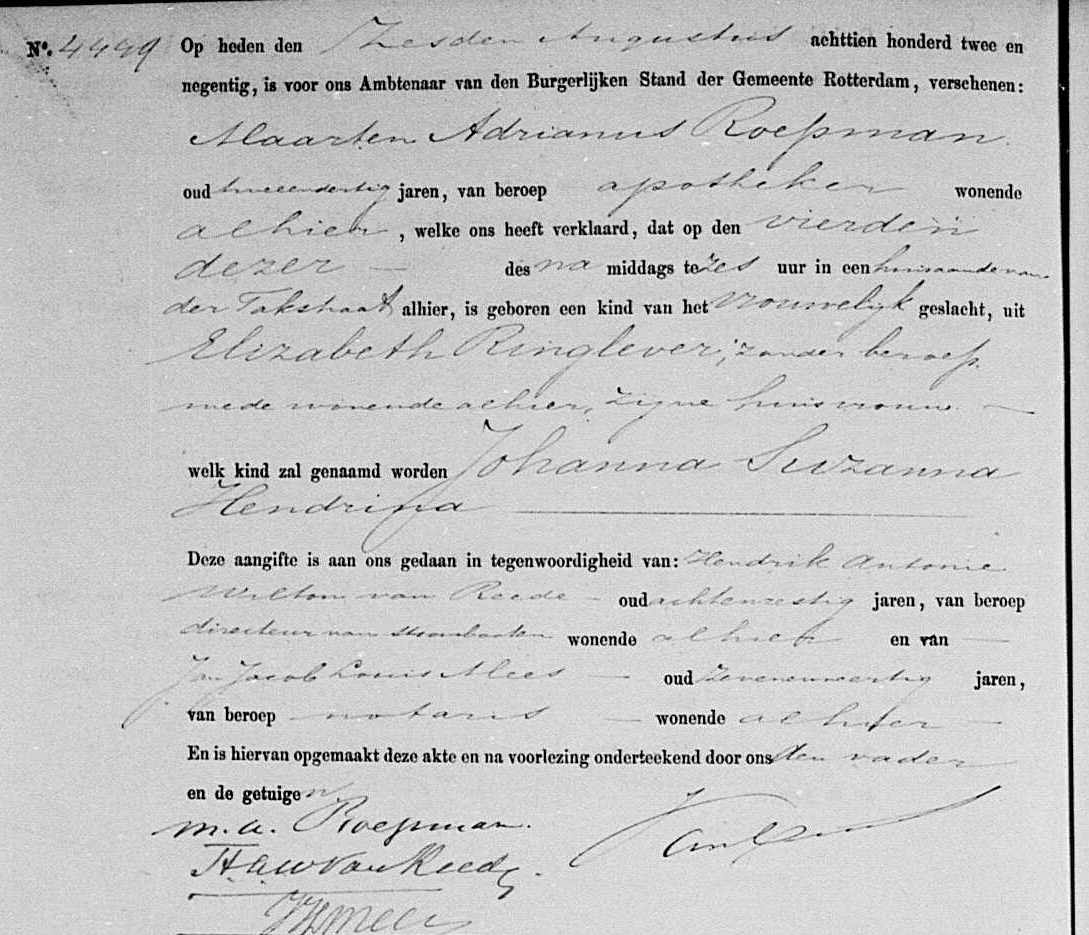 Nº. 4449 Op heden den Zesden Augustus achttien honderd twee en
negentig, is voor ons Ambtenaar van den Burgerlijken Stand der Gemeente Rotterdam, verschenen:
Maarten Adrianus Roepman
oud tweeendertig jaren, van beroep apotheker wonende
alhier, welke ons heeft verklaard, dat op den vierden
dezer – des na middags te zes uur in een huis aan de van
der Takstraat alhier, is geboren een kind van het vrouwelijk geslacht, uit
Elizabeth Ringlever, zonder beroep
mede wonende alhier, zijne huisvrouw. –
welk kind zal genaamd worden Johanna Suzanna
Hendrina
Deze aangifte is aan ons gedaan in tegenwoordigheid van: Hendrik Antonie
Wilton van Reede – oud achtenzestig jaren, van beroep
directeur van stoombooten wonende alhier en van –
Jan Jacob Louis Mees – oud zevenenveertig jaren,
van beroep notaris – wonende alhier –
En is hiervan opgemaakt deze akte en na voorlezing onderteekend door ons den vader
en de getuigen
M. A. Roepman.
H A W van Reede.
Mees